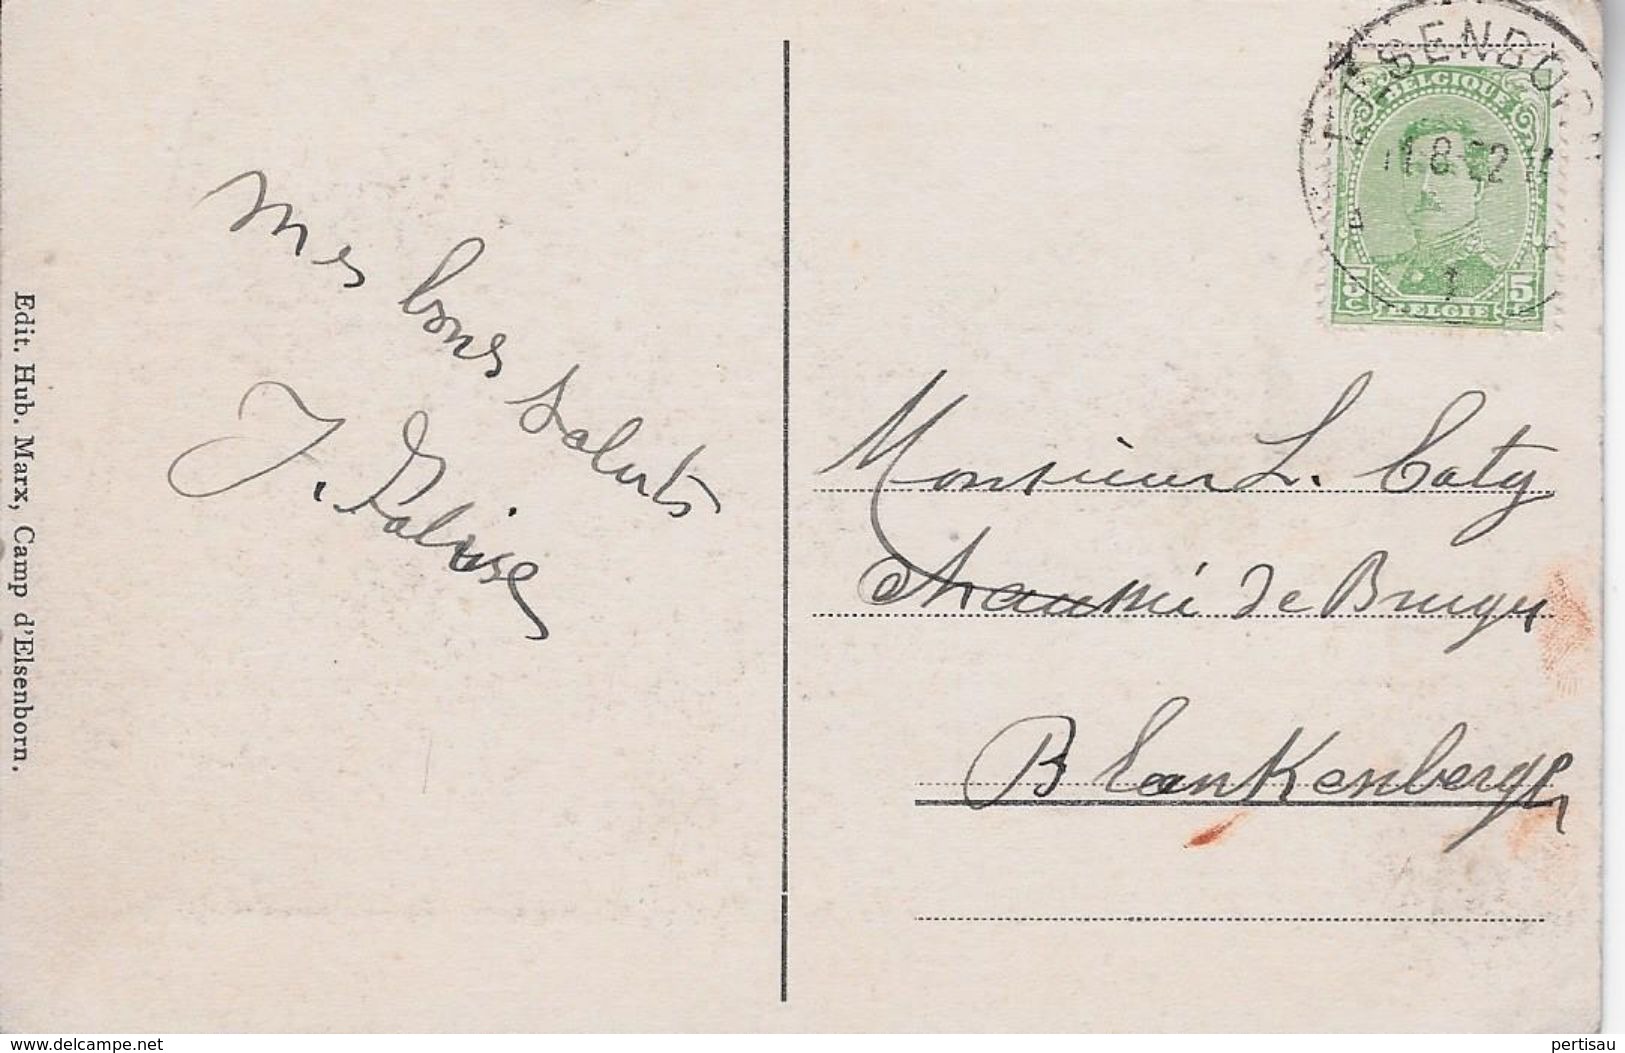 Edit. Hub. Marx, Camp d'Elsenborn.
Mes bons saluts
J.
ELSENBORN
BELGIQUE
5c 5
BELGIE
Monsieur L. Caty
Chaussée de Bruges
Blankenberge
www.delcampe.net
pertisau